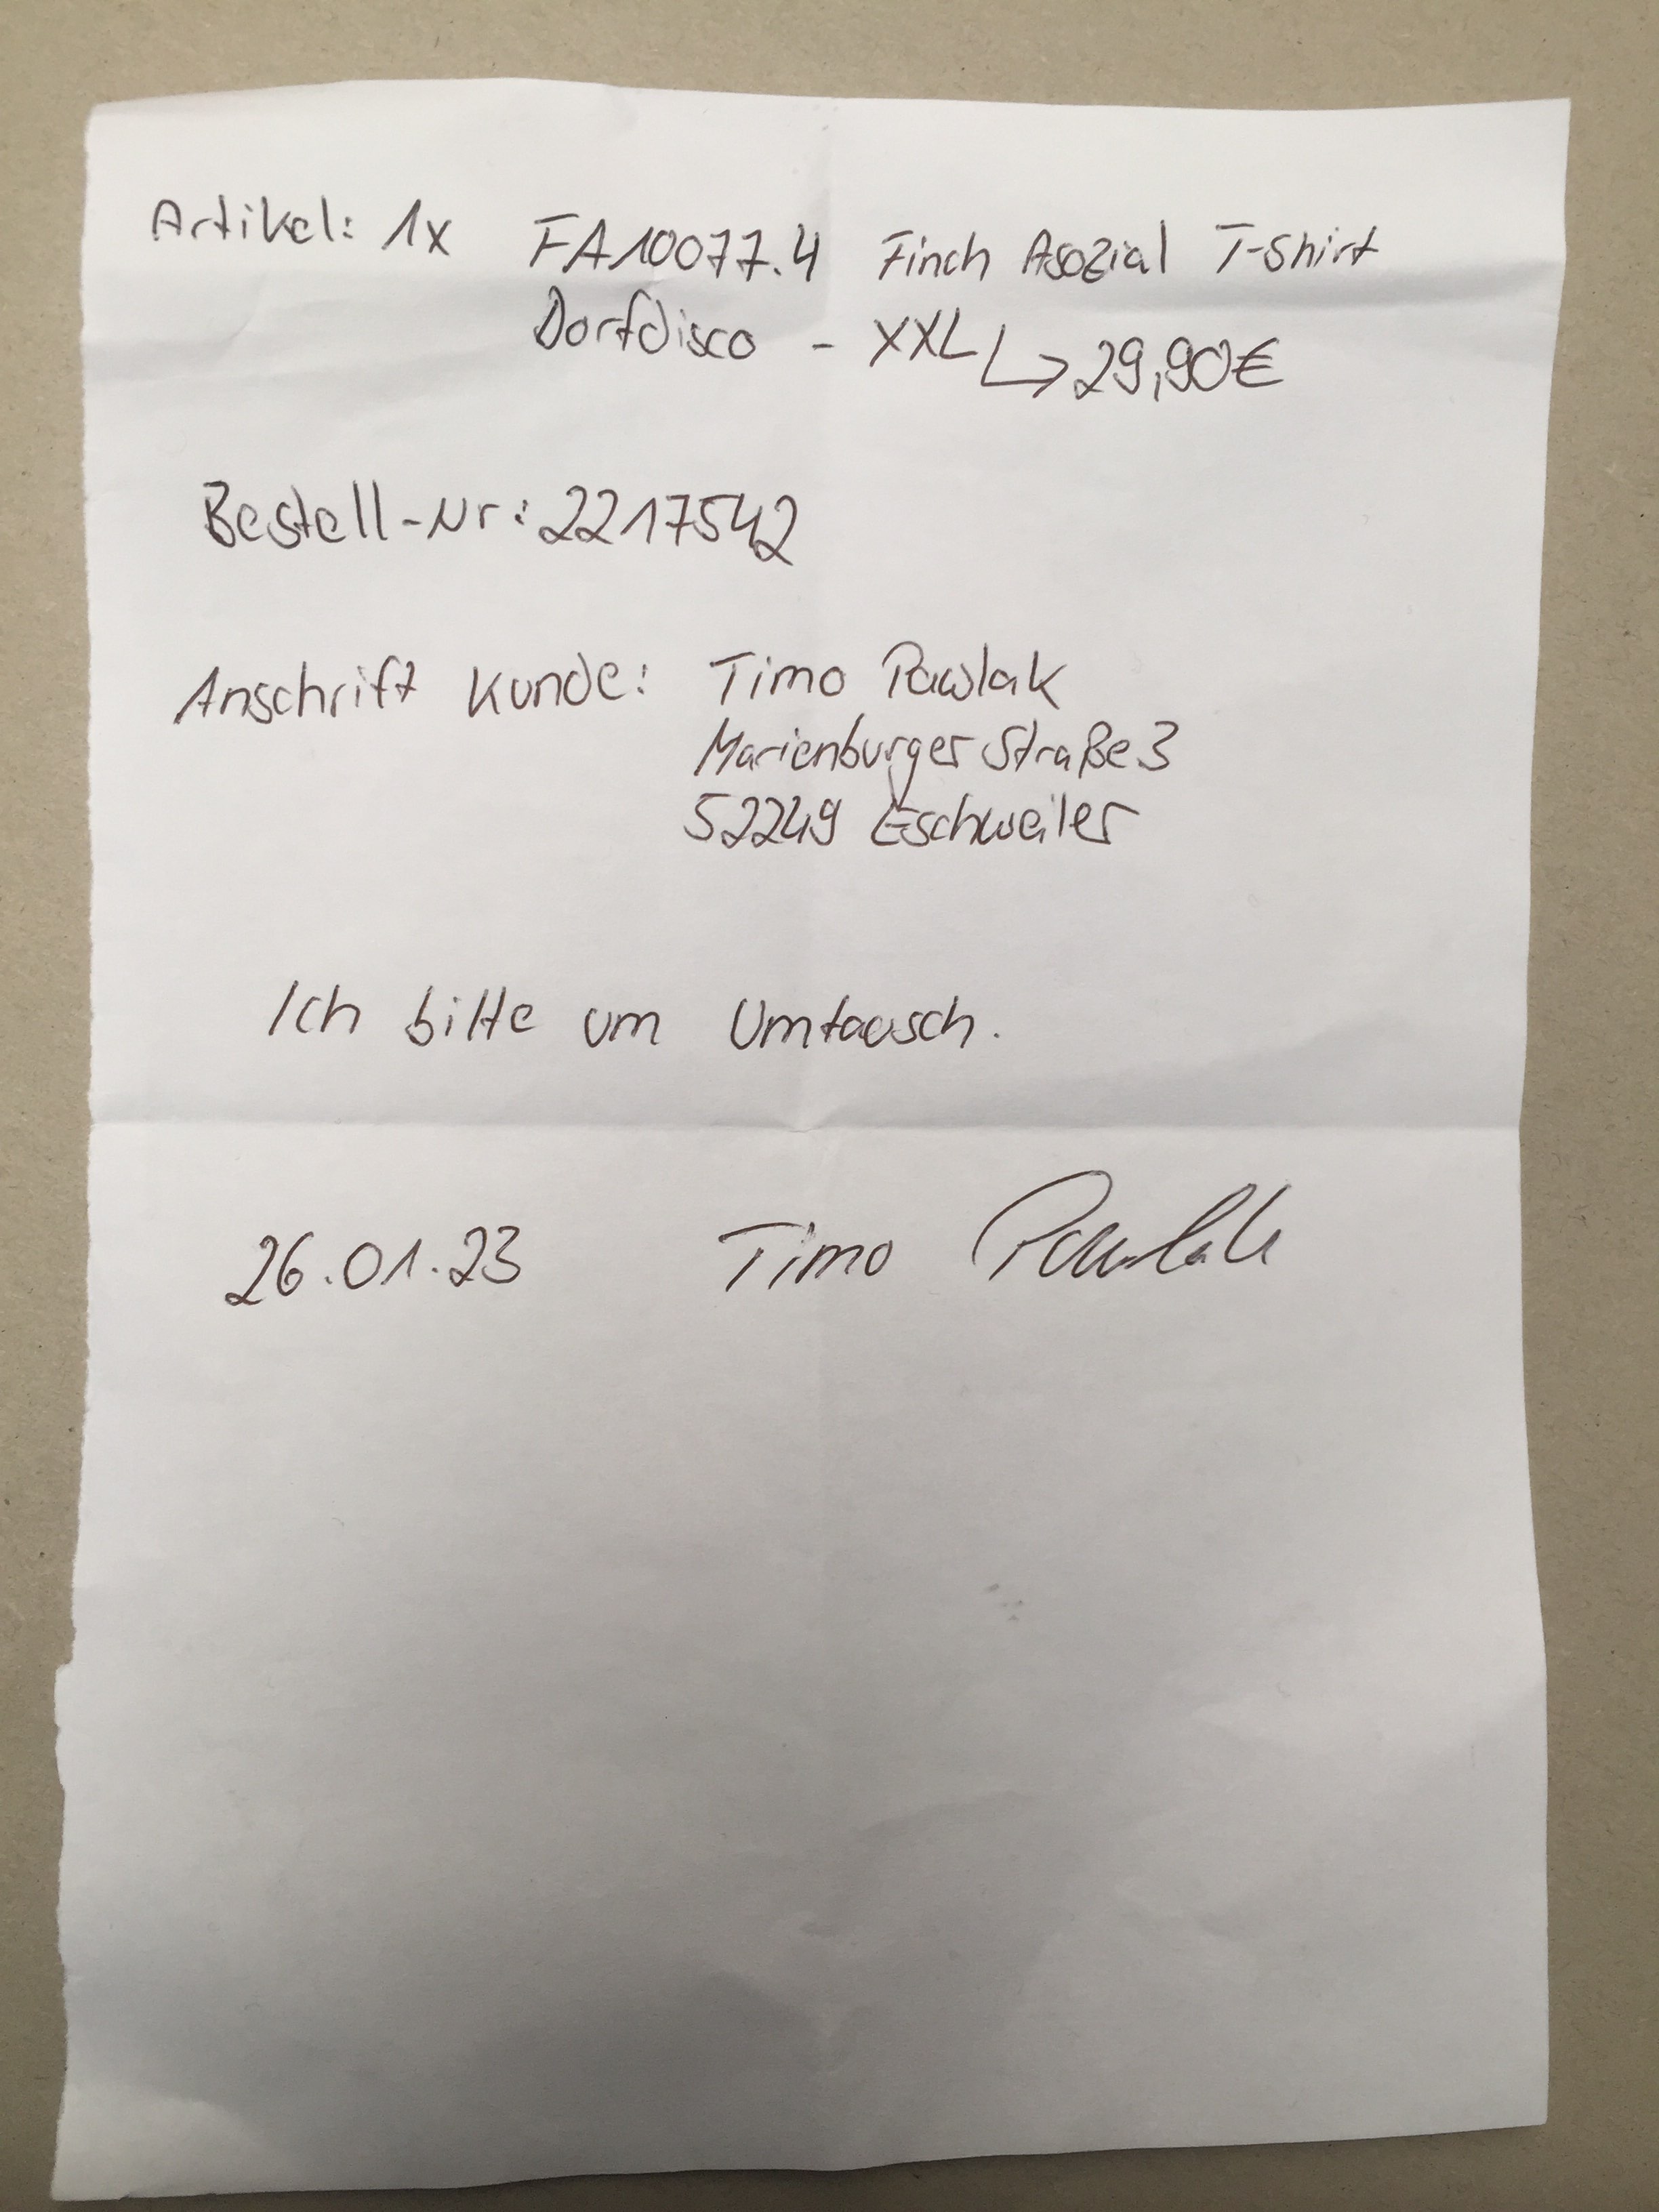 Artikel: 1x FA10077.4 Finch Asozial T-Shirt
Dorfdisco - XXL ↳ 29,90€
Bestell-Nr: 2217542
Anschrift Kunde: Timo Pawlak
Marienburger Straße 3
52249 Eschweiler
Ich bitte um Umtausch.
26.01.23 Timo Pawlak